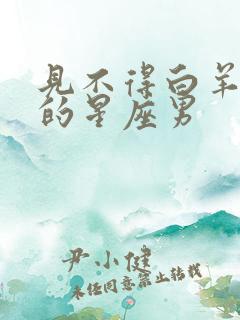 见不得白羊
的星座男
尹小健
未经同意禁止转载